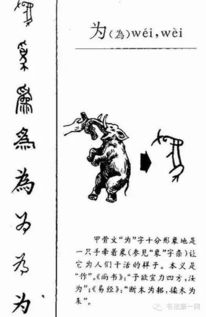 为(為)wéi,wèi
甲骨文“为”字十分形象地是
一只手牵着象(参见“象”字条)让
它为人们干活的样子。本义是
“作”。《尚书》:“予欲宣力四方,汝
为”;《易经》:“断木为杵,掘木为
为